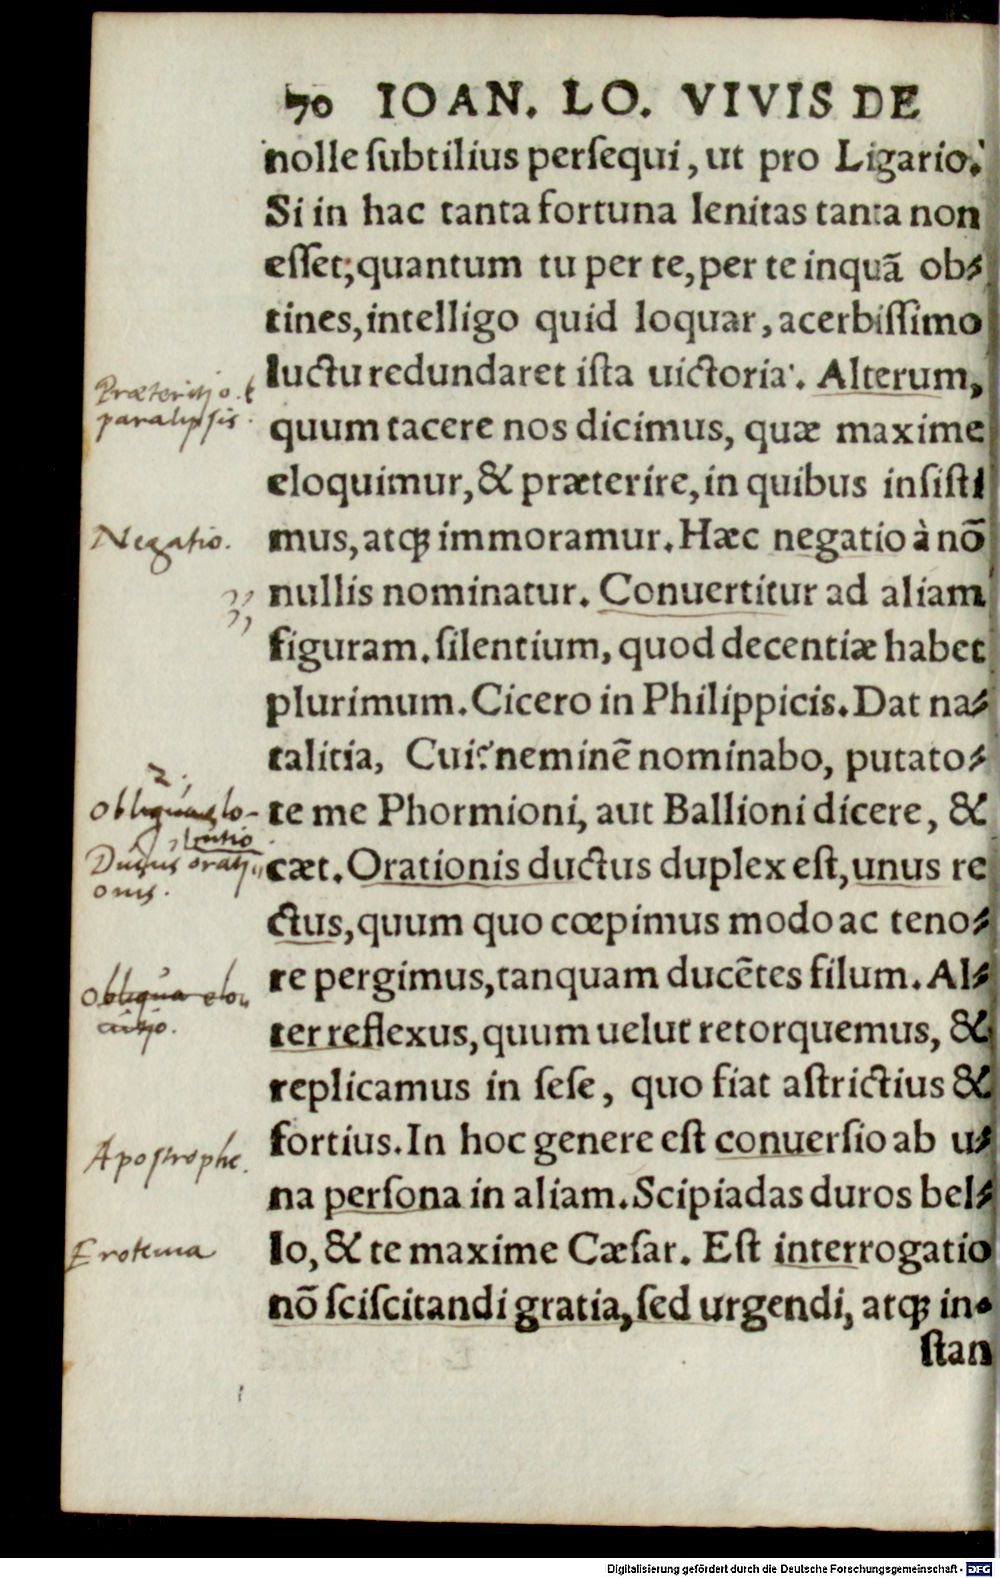 70 IOAN. LO. VIVIS DE
nolle ſubtilius perſequi, ut pro Ligario.
Si in hac tanta fortuna lenitas tanta non
eſſet; quantum tu per te, per te inquã ob⸗
tines, intelligo quid loquar, acerbiſſimo
luctu redundaret iſta uictoria. Alterum,
Præteritio. t
paralipsis.
quum tacere nos dicimus, quæ maxime
eloquimur, & præterire, in quibus inſiſti
mus, atqꝫ immoramur. Hæc negatio à nõ
Negatio.
nullis nominatur. Conuertitur ad aliam
figuram. ſilentium, quod decentiæ habet
plurimum. Cicero in Philippicis. Dat na⸗
talitia, Cui? neminẽ nominabo, putato⸗
te me Phormioni, aut Ballioni dicere, &
2.
Obliqua elo-
cutio
cæt. Orationis ductus duplex eſt, unus re
Ductus orati
onis.
ctus, quum quo cœpimus modo ac teno⸗
re pergimus, tanquam ducẽtes filum. Al⸗
Obliqua elo
cutio.
ter reflexus, quum uelut retorquemus, &
replicamus in ſeſe, quo fiat aſtrictius &
fortius. In hoc genere eſt conuerſio ab u⸗
Apostrophe.
na perſona in aliam. Scipiadas duros bel⸗
lo, & te maxime Cæſar. Eſt interrogatio
Erotema
nõ ſciſcitandi gratia, ſed urgendi, atqꝫ in⸗
ſtan
Digitalisierung gefördert durch die Deutsche Forschungsgemeinschaft - DFG